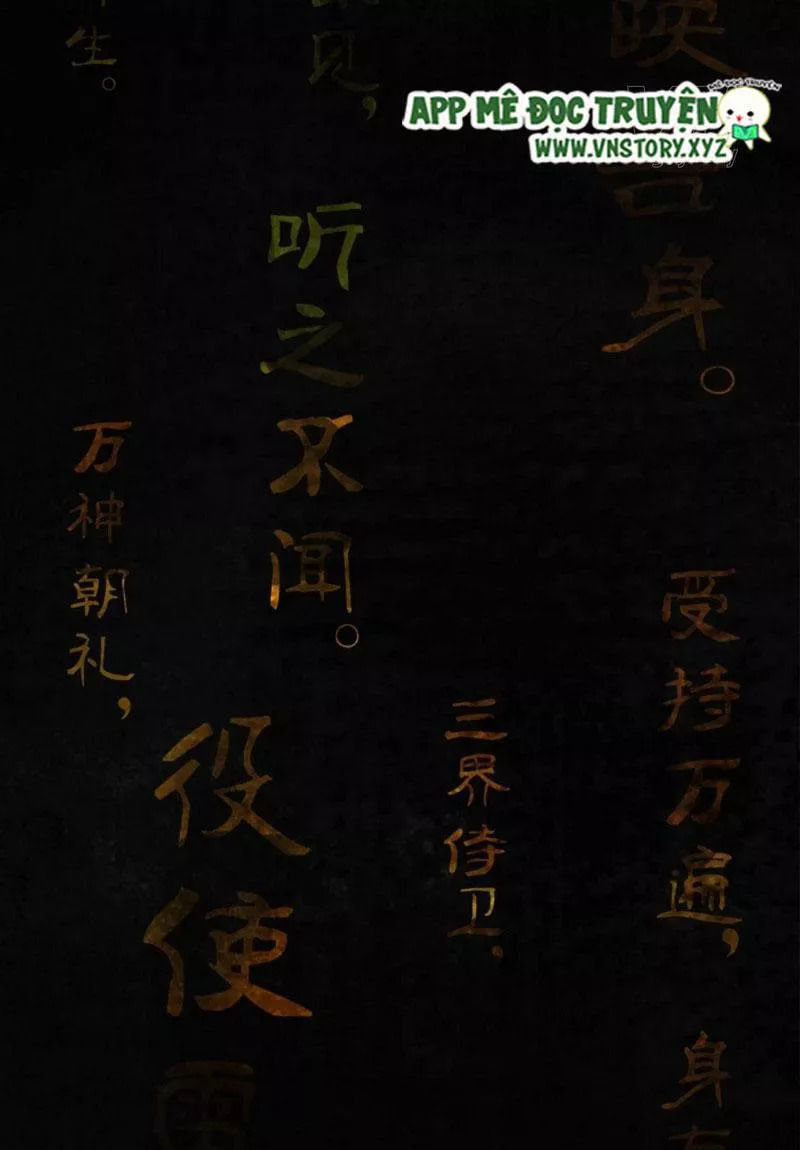 APP MÊ ĐỌC TRUYỆN
WWW.VNSTORY.XYZ
映吾身。
受持万遍，
身有
三界侍卫，
视之不见，
听之不闻。
役使雷
生。
万神朝礼，